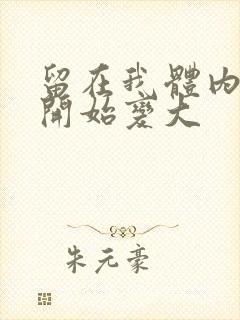 留在我體內
開始變大
朱元豪